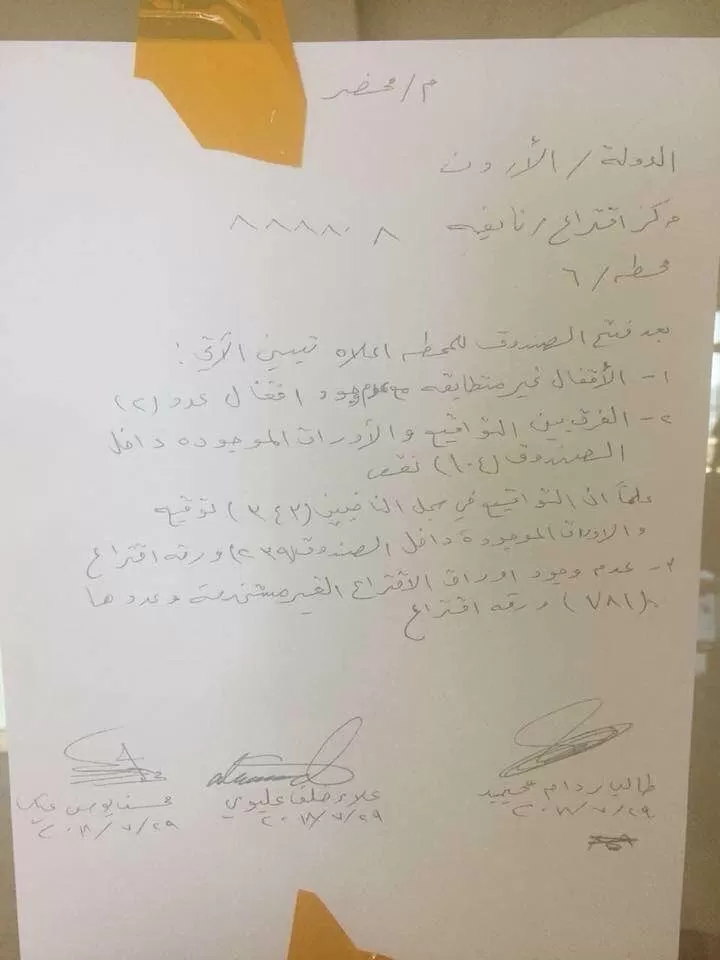 م/ محضر
الدولة / الأردن
مركز اقتراع / نايفه ٨٨٨٨٠٨
محطه / ٦
بعد فتح الصندوق للمحطه اعلاه تبين الآتي :
١- الأقفال غير متطابقه وجود اقفال عدد (٢)
٢- الفرق بين التواقيع والأوراق الموجوده داخل
الصندوق (١٠٤) نقص
علماً ان التواقيع في سجل الناخبين (٣٤٣) توقيع
والاوراق الموجودة داخل الصندوق (٢٣٩) ورقه اقتراع
٣- عدم وجود اوراق الاقتراع الغير مستخدمة وعددها
(٧٨١) ورقه اقتراع
طالب ردام محيميد
٢٠١٨/٧/٢٩
علاء خلف عليوي
٢٠١٨/٧/٢٩
يونس
٢٠١٨/٧/٢٩